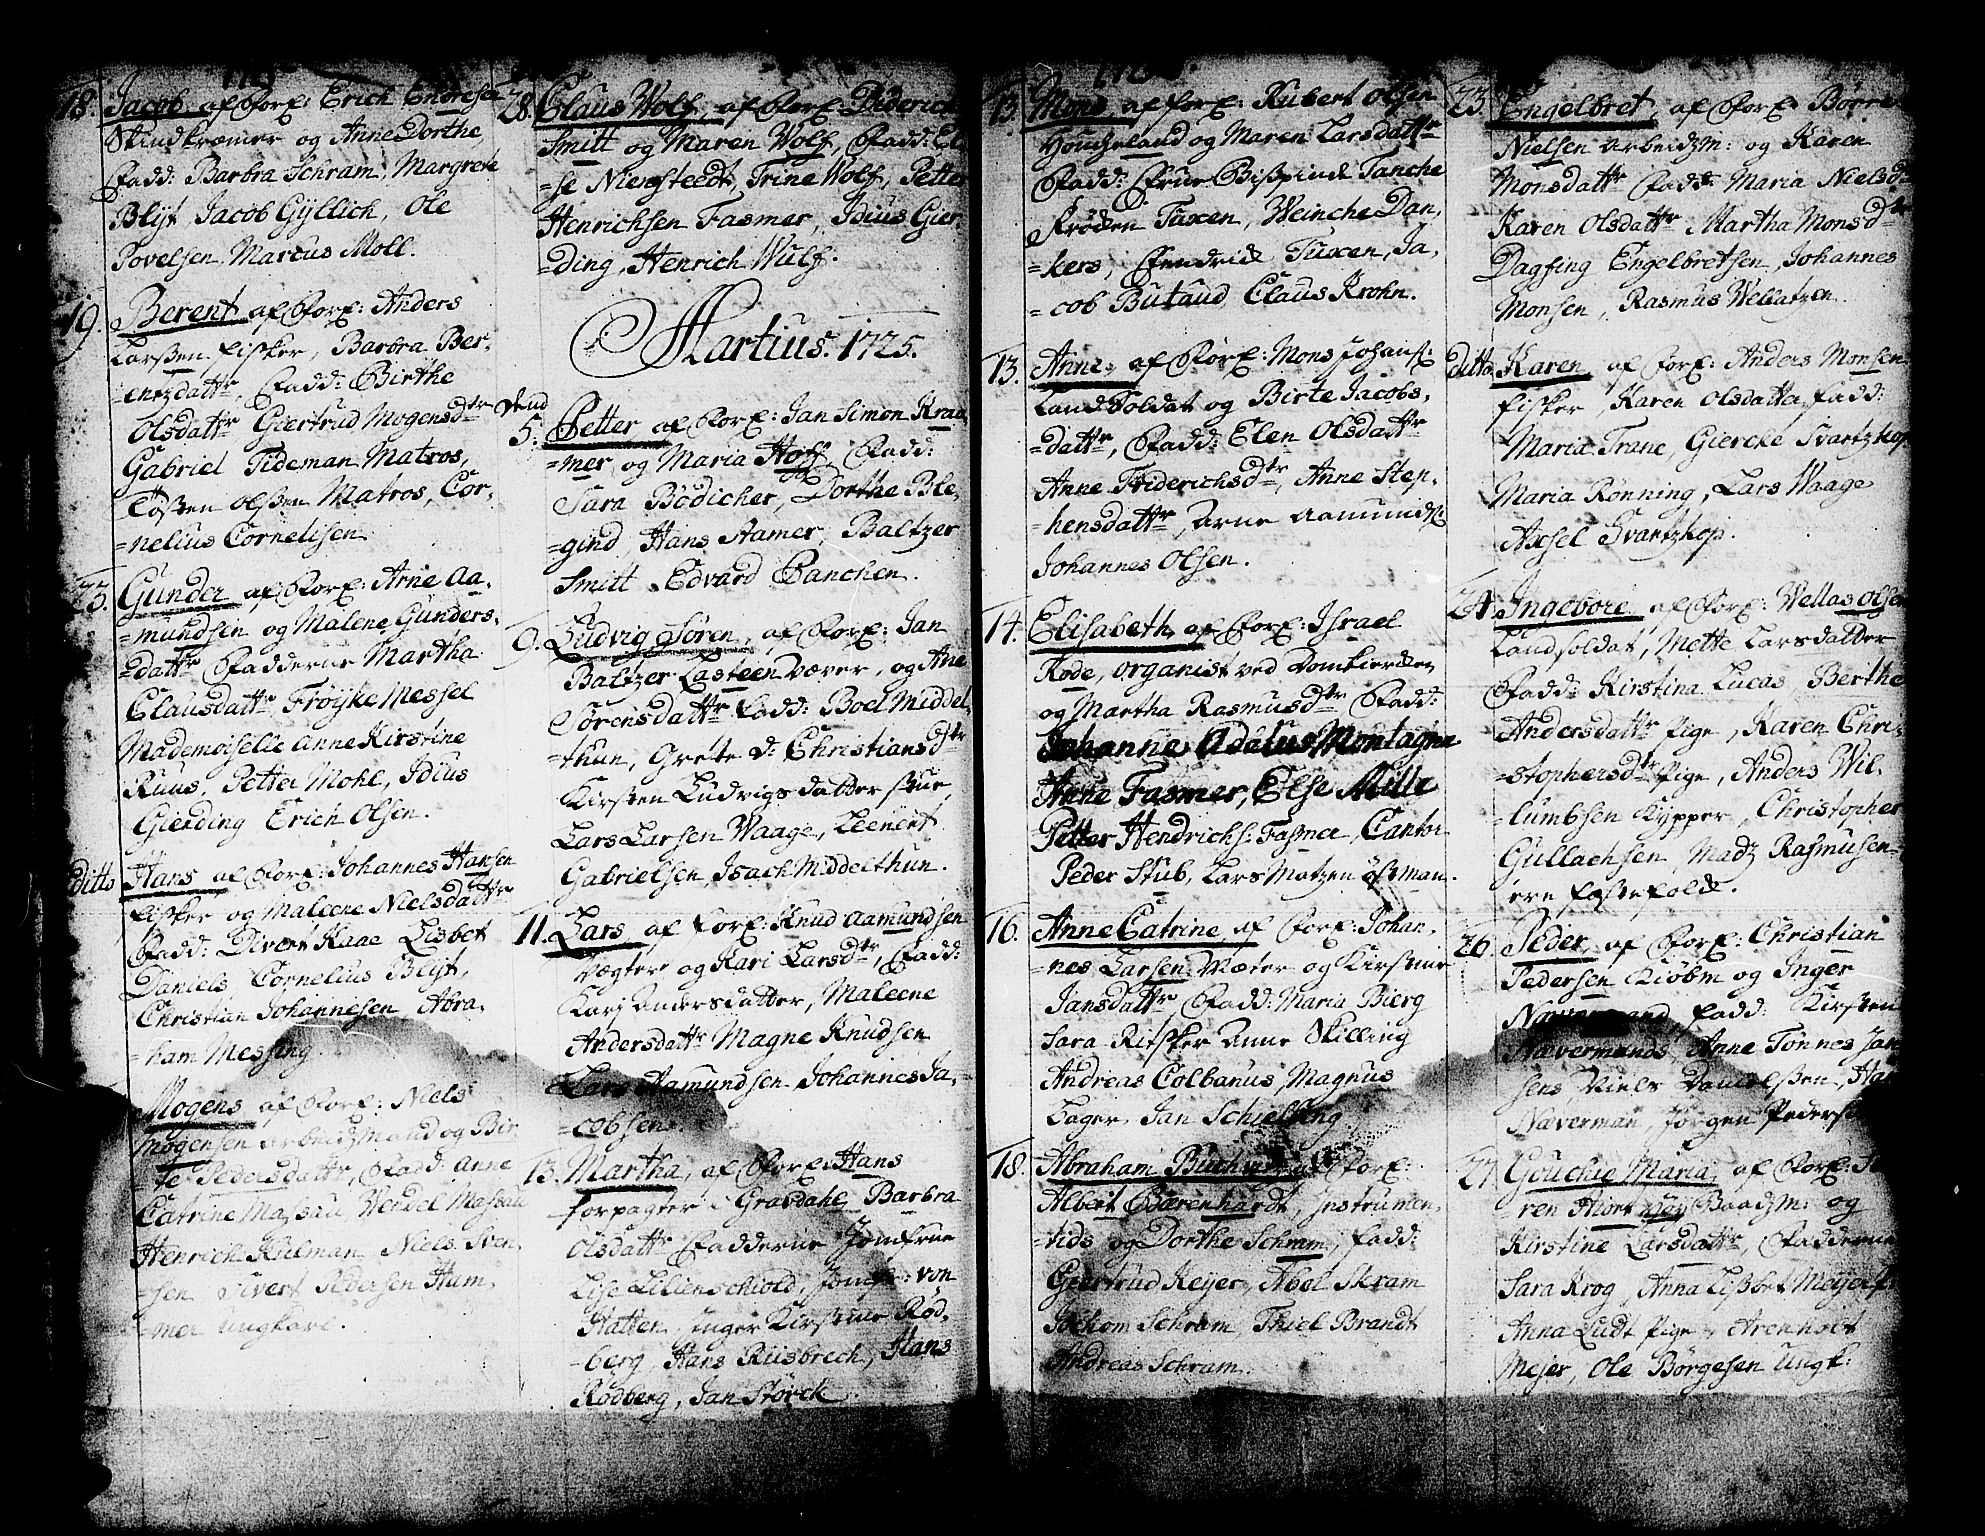 18. Jacob af For͠: Erich Endresen
Skindkræmer og Anne Dorthe,
Fadd: Barbra Schram, Margrete
Blijt, Jacob Gyllich, Ole
Povelsen, Marcus Moll.
19. Berent af For͠: Anders
Larßen, fisker, Barbra Ber,
=entzdattr, Fadd: Birthe
Olsdattr Giertrud Mogensdtr
Gabriel Tideman Matros,
olßen Matros, Cor,
=nelius Cornelisen
23. Gunder af For͠: Arne Aa,
=mundsen og Malene Gunders,
=dattr Fadderne Martha
Clausdattr, Frøijke Messel
Mademoiselle Anne Kirstine
Ruus, Petter Mohl, Idius
Gierding Erich Olsen.
ditto Hans af For͠: Johannes Hansen
fisker og Maleene Nielsdattr
Fadd: Divert Kaae Lisbet
Daniels Cornelius Blijt,
Christian Johannesen Abra,
=ham Messing.
Mogens af For͠: Niels
Mogensen arbeidzmand og Bir
te Pedersdattr, Fadd: Anne
Catrine Massau Wendel Massau
Henrich Kulman Niels Sven,
sen Sivert Pedersen Ham,
=mer ungkarl.
28. Claus Wolf, af For͠: Diderich
Smitt og Maren Wolf, Fadd: El
=se Niensteedt, Trine Wolf, Petter
Henrichsen Fasmer, Idius Gier
=ding, Henrich Wulf.
Martius. 1725.
5. Petter af For͠: Jan Simon Kraa
=mer og Maria Hoff, Fadd:
Sara Bødicher, Dorthe Ble,
=gind Hans Aamer, Baltzer
Smitt Edvard Panchen.
9. Ludvig Søren, af For͠: Jan
Baltzer Casteen Væver, og Ane
Sørensdattr Fadd: Boel Middel,
=thun, Grete d: Christiansdtr
Kirsten Ludvigsdatter
Lars Larsen Waage, Leenert
Gabrielsen, Isach Middelthun.
11. Lars af For͠: Knud Aamundsen
Vægter og Kari Larsdtr, Fadd:
Kari Andersdatter, Maleene
Andersdattr Magne Knudsen
Lars Aamundsen Johannes Ja,
=cobsen
13. Martha, af For͠: Hans
forpagter i Gravdahl, Barbra
Olsdattr Fadderne Jomfrue
Lise Lilienschiold, Jomfr: von
Hatten, Inger Kirstine Rød,
=berg, Hans Riisbrech, Hans
Rødberg, Jan Størck.
13. Mons af For͠: Rubert Olsen
Houcheland og Maren Larsdattr
Fadd: Frue Bispinde Tanche
Frøden Tuxen, Weinche Dan,
=kers, Fendrich Tuxen, Ja,
=cob Butaud Claus Krohn.
13. Anne af For͠: Mons Johans:
Land Soldat og Birte Jacobs,
=dattr, Fadd: Elen Olsdattr
Anne Friderichsdtr, Anne Step,
=hensdattr, Arne Aamunds:
Johannes Olsen.
14. Elisabeth af For͠: Israel
Rode, organist ved Domkierken
og Martha Rasmusdtr Fadd:
Johanne Adelus Montagne
Anne Fasmer, Else Mille
Petter Hendrichs: Fasmer, Cantor
Peder Stub, Lars Matzen østman.
16. Anne Catrine, af For͠: Johan,
=nes Larsen Mæter og Kirstine
Jansdattr Fadd: Maria Bierg
Sara Ritsker Anne Skilling
Andreas Colbanus Magnus
Lager Jan Schielling
18. Abraham Buchw af For͠:
Albert Bærenhardt, Instrumen,
=tids og Dorthe Schram, Fadd:
Giertrud Keijer, Abel Skram
Jochom Schram, Thiel Brandt
Andreas Schram.
23. Engelbret af For͠: Børre
Nielsen arbeidzm: og Karen
Monsdattr Fadd: Maria Nielsd:
Karen Olsdattr Martha Monsdtr
Dagfing Engelbretsen, Johannes
Monsen, Rasmus Wellatzen.
ditto Karen af For͠: Anders Monsen
fisker, Karen Olsdatter, Fadd:
Maria Trane, Giercke Svartzkop
Maria Rønning, Lars Waage
Axsel Svartzkop.
24. Ingebore af For͠: Wellas Olsen
Landsoldat, Mette Larsdatter
Fadd: Kirstina Lucas, Berthe
Andersdattr pige, Karen Chri,
=stophersdtr pige, Anders Wil,
=lumbsen Kypper, Christopher
Gullachsen, Madz Rasmusen
ere festefolck.
26. Peder, af For͠: Christian
Pedersen Kiøbm og Inger
Nævermand Fadd: Kirsten
Nævermands, Anne Tønnes Jan
sens, Niels Danielßen, Han
Næverman, Jørgen Peders
27. Gouchie Maria, af For͠: Sø
=ren Hiort Baadzm: og
Kirstine Larsdattr, Fadderne
Sara Krog, Anna Lisbet Meijer
Anna Ludt pige, Arenholt
Mejer, Ole Børgesen ungk: